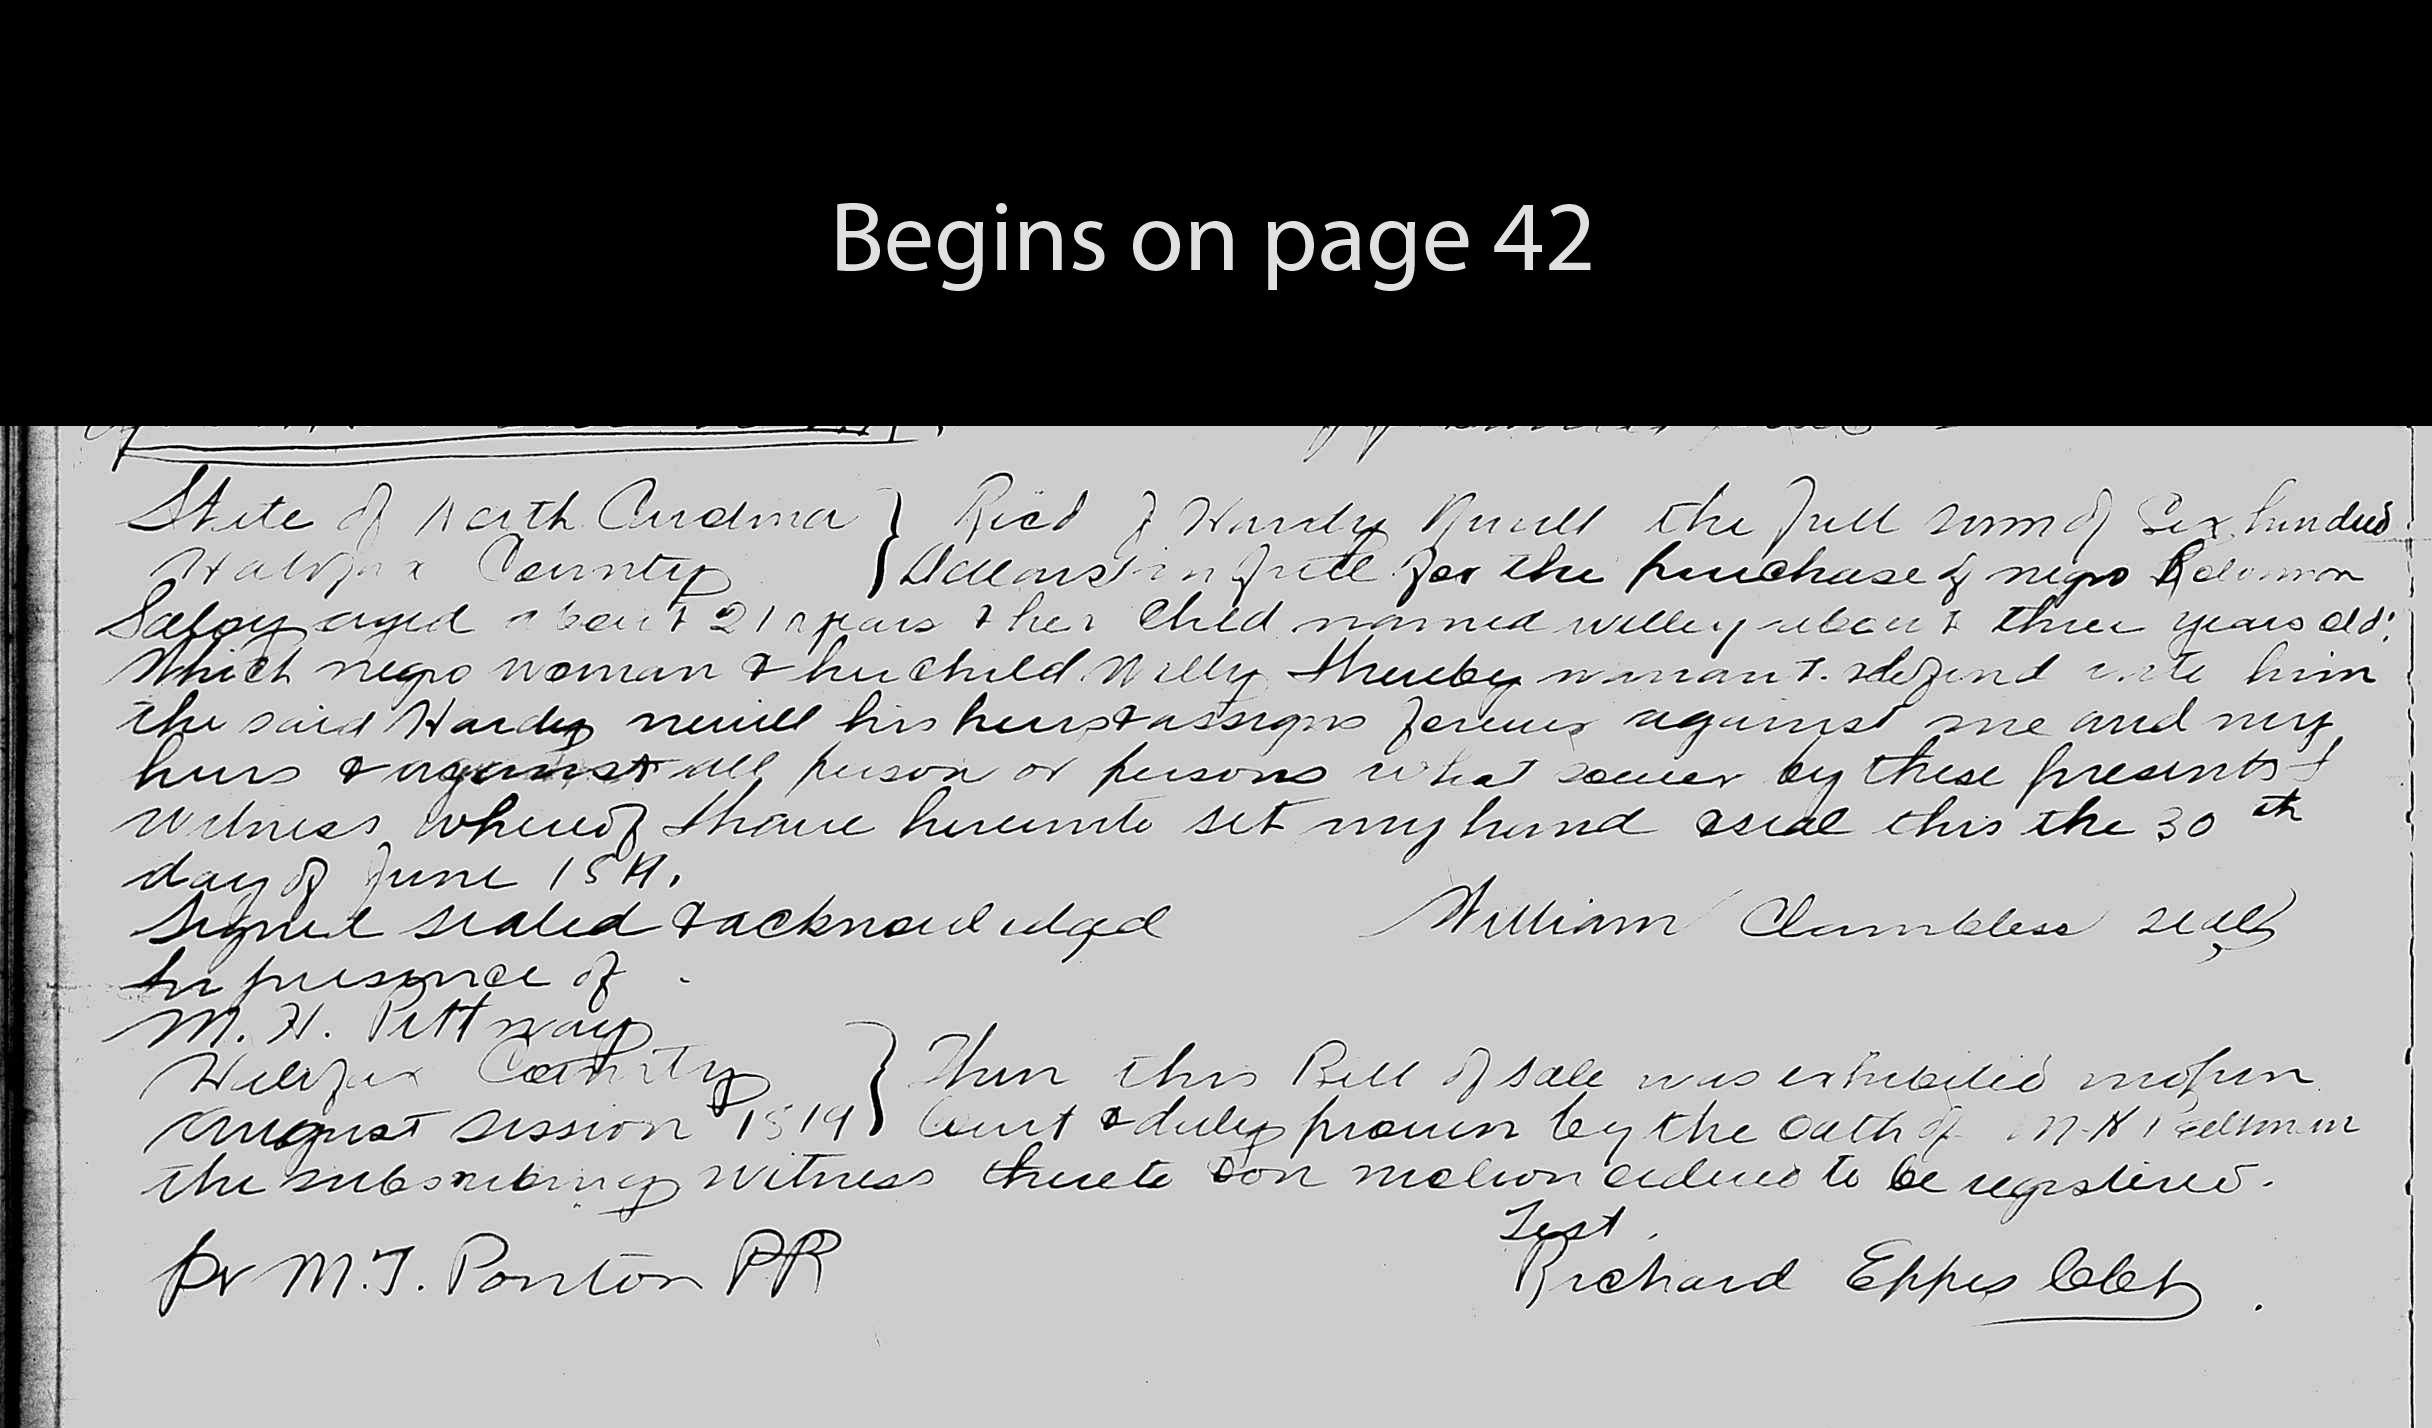 Begins on page 42
State of North Carolina } Recd of Hardy Nevill the full sum of Six hundred
Halifax County } Dollars in full for the purchase of negro woman
aged about 21 years & her Child named willey about three years old.
Which negro woman & her child Willy I hereby warrant & defend unto him
the said Hardy nevill his heirs & assigns forever against me and my
heirs & against all person or persons what soever by these presents I
witness whereof I have hereunto set my hand & seal this the 30th
day of June 1819.
Signed sealed & acknowledged William Chambless seal
In presence of
M. H. Pittway
Halifax County } Then this Bill of sale was exhibited in open
August session 1819 } Court & duly proven by the oath of M H
the subscribing witness thereto & on motion ordered to be registered.
Test.
pr M. T. Ponton PR Richard Eppes Clk